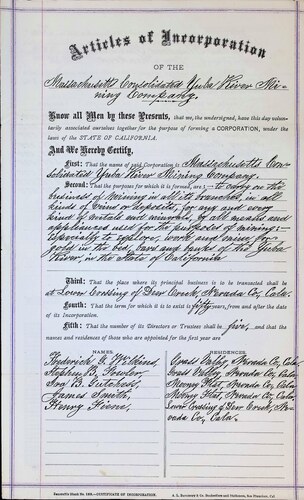 Articles of Incorporation
OF THE
Massachusetts Consolidated Yuba River Min-
ing Company.
Know all Men by these Presents, that we, the undersigned, have this day volun-
tarily associated ourselves together for the purpose of forming a CORPORATION, under the
laws of the STATE OF CALIFORNIA.
And We Hereby Certify,
First: That the name of said Corporation is Massachusetts Con-
solidated Yuba River Mining Company.
Second: That the purposes for which it is formed, are :— to carry on the
business of Mining in all its branches, in all
kinds of veins or deposits, for any and every
kind of metals and minerals, by all means and
appliances used for the purposes of mining:—
especially to explore, work and mine for
gold in the bed, bars and banks of the Yuba
River, in the State of California
Third: That the place where its principal business is to be transacted shall be
at Lower Crossing of Deer Creek, Nevada Co., Cala.
Fourth: That the term for which it is to exist is fifty years, from and after the date
of its Incorporation.
Fifth: That the number of its Directors or Trustees shall be five, and that the
names and residences of those who are appointed for the first year are
NAMES. RESIDENCES.
Frederick G. Wilkins Grass Valley, Nevada Co., Cala.
Stephen B. Fowler Grass Valley, Nevada Co., Cala.
Mooney Flat, Nevada Co., Cala.
James Smith Mooney Flat, Nevada Co., Cala.
Henry Lower Crossing of Deer Creek, Ne-
vada Co., Cala.
CERTIFICATE OF INCORPORATION.
A. L. Bancroft & Co. San Francisco, Cal.